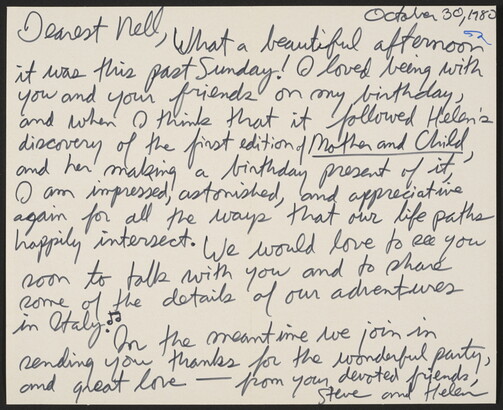 October 30, 1983
Dearest Nell,
What a beautiful afternoon
it was this past Sunday! I loved being with
you and your friends on my birthday,
and when I think that it followed Helen's
discovery of the first edition of Mother and Child,
and her making a birthday present of it,
I am impressed, astonished, and appreciative
again for all the ways that our life paths
happily intersect. We would love to see you
soon to talk with you and to share
some of the details of our adventures
in Italy.
In the meantime we join in
sending you thanks for the wonderful party,
and great love — from your devoted friends,
Steve and Helen